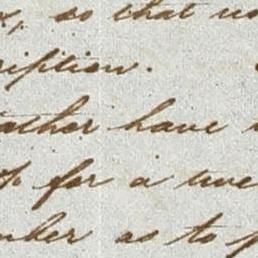 so that
ription.
ather have
for a
mber as to